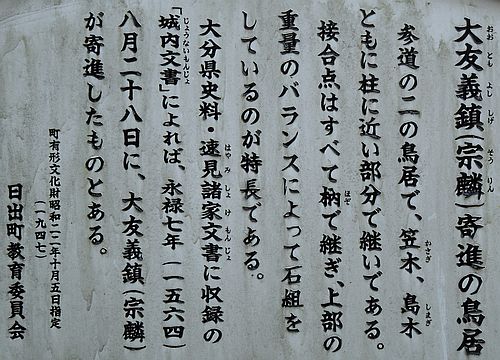 大友義鎮(宗麟)寄進の鳥居
参道の二の鳥居で、笠木、島木
ともに柱に近い部分で継いである。
接合点はすべて枘で継ぎ、上部の
重量のバランスによって石組を
しているのが特長である。
大分県史料・速見諸家文書に収録の
「城内文書」によれば、永禄七年(一五六四)
八月二十八日に、大友義鎮(宗麟)
が寄進したものとある。
町有形文化財昭和二二年十月五日指定
(一九四七)
日出町教育委員会